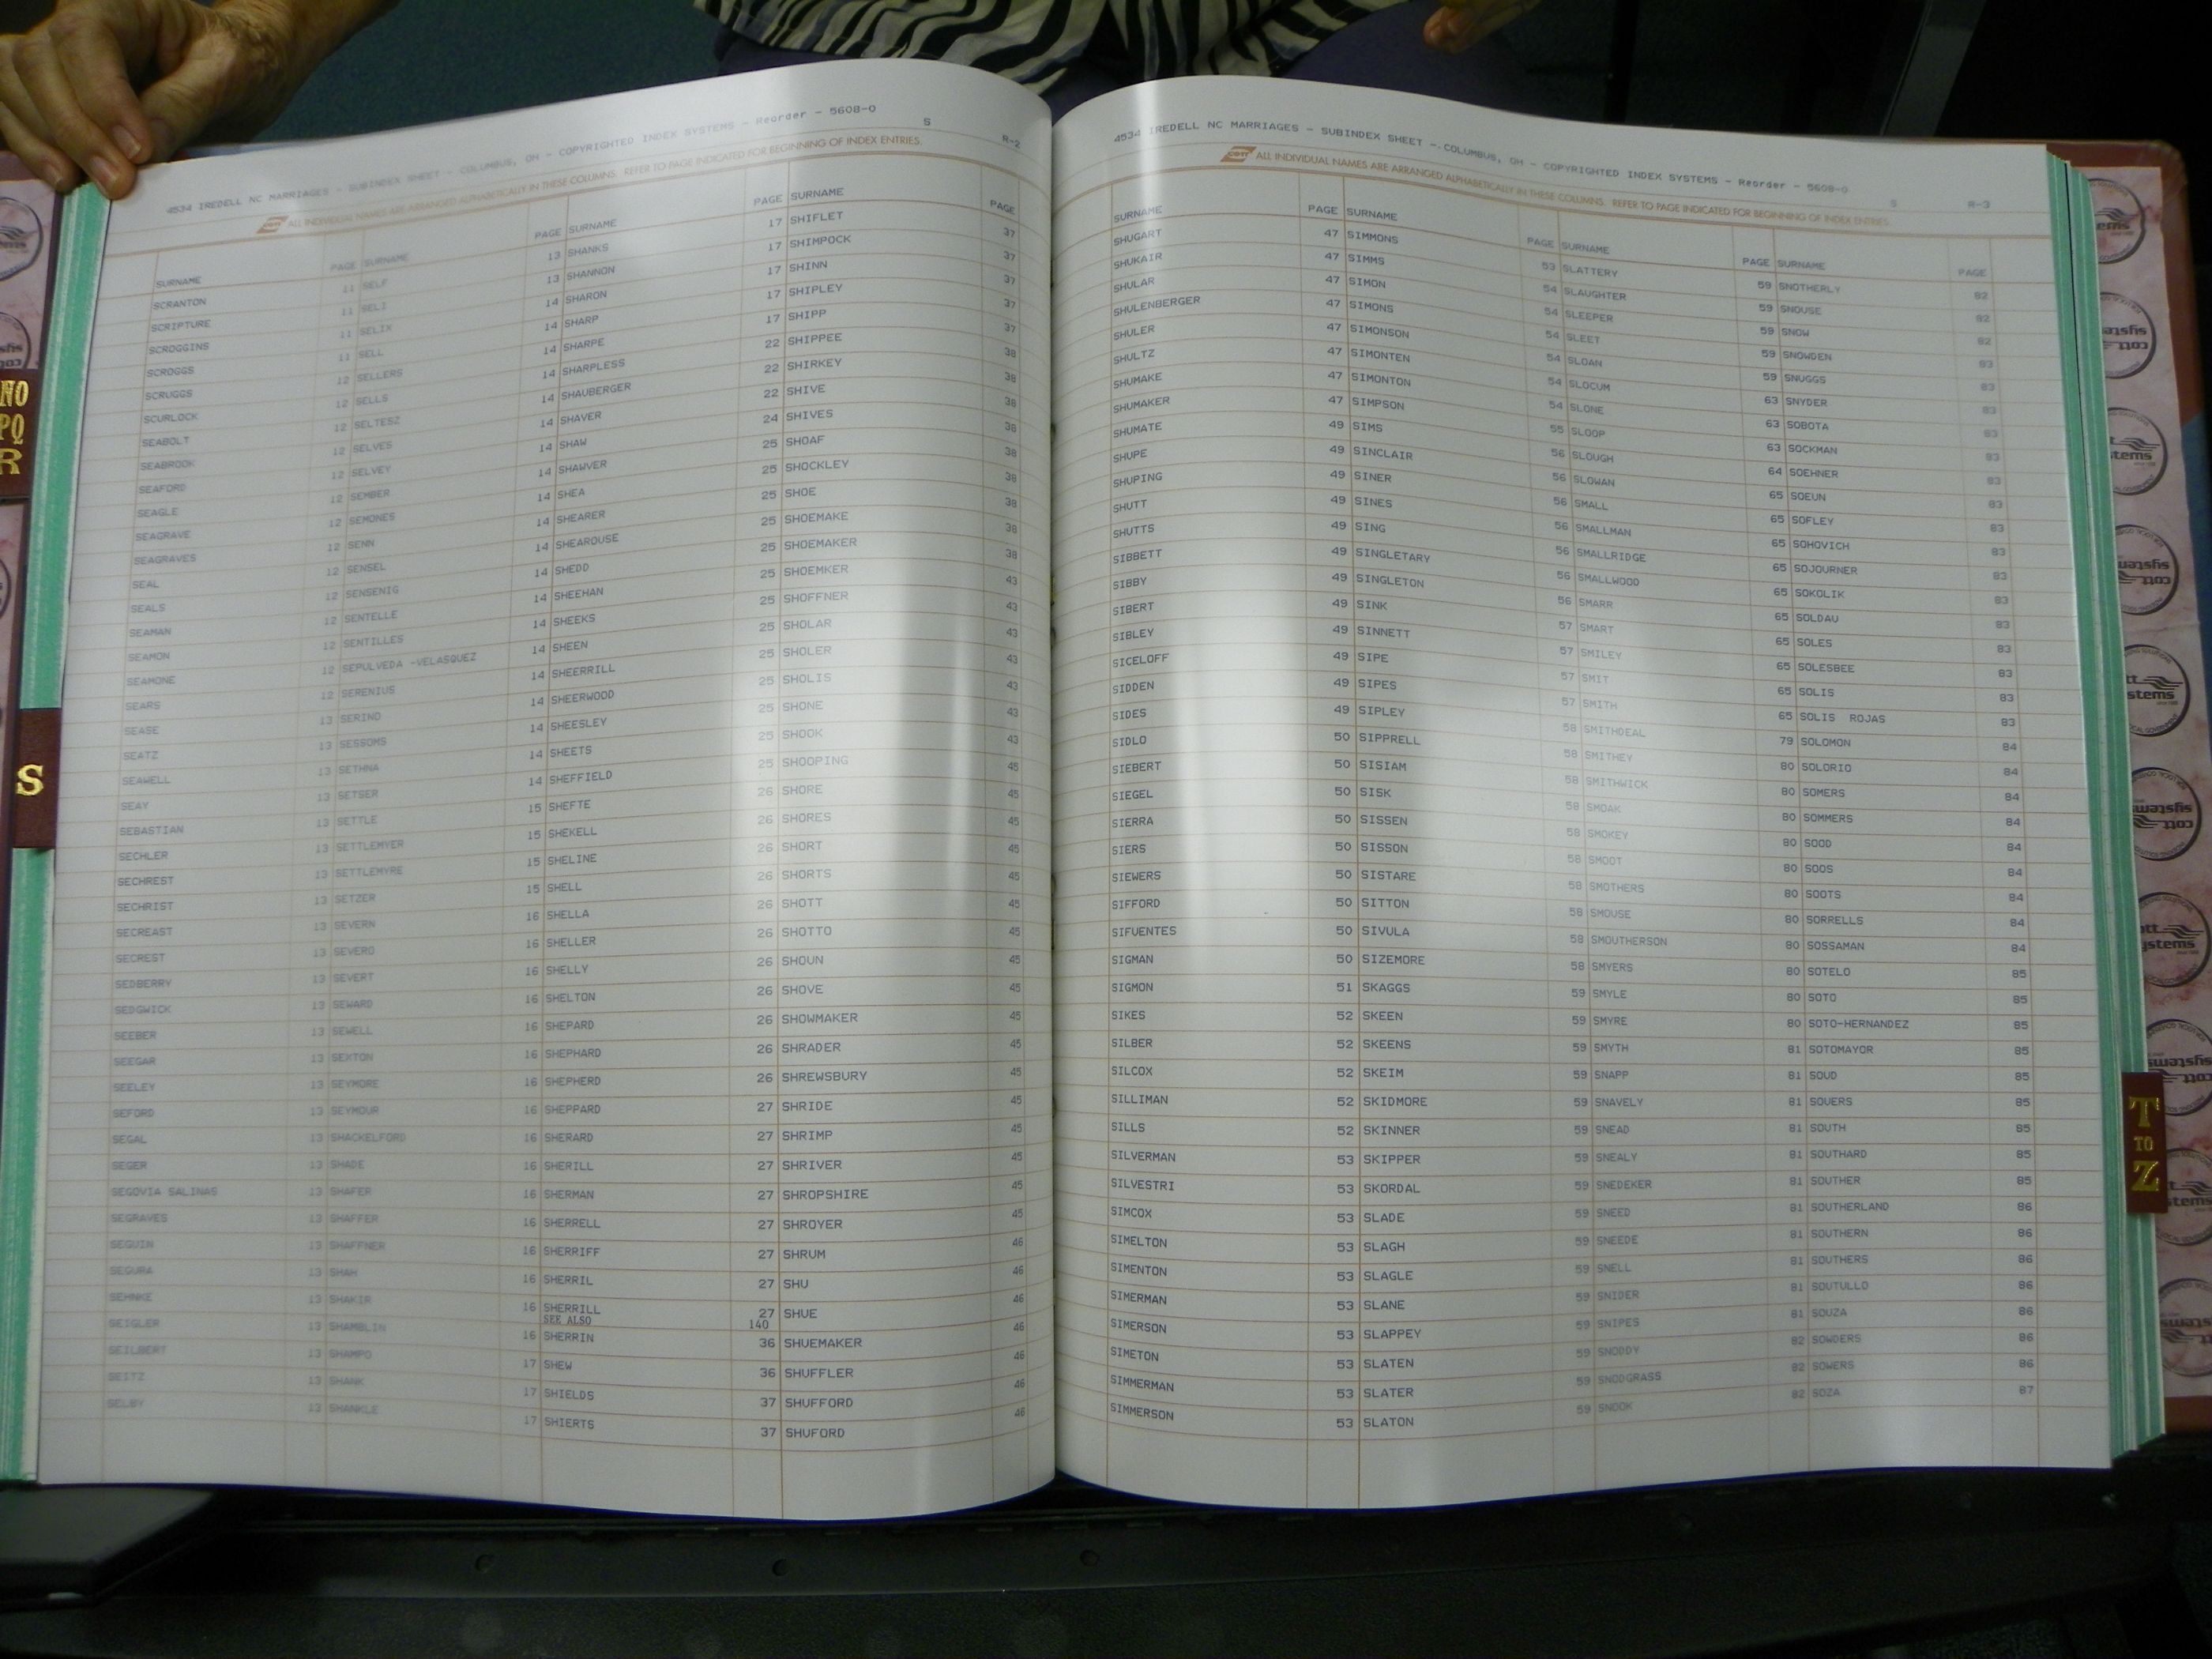 NO
PQ
R
S
T
TO
Z
4534 IREDELL NC MARRIAGES - SUBINDEX SHEET - COLUMBUS, OH - COPYRIGHTED INDEX SYSTEMS - Reorder - 5608-0
S R-2
ALL INDIVIDUAL NAMES ARE ARRANGED ALPHABETICALLY IN THESE COLUMNS. REFER TO PAGE INDICATED FOR BEGINNING OF INDEX ENTRIES.
SURNAME PAGE
SCRANTON 11
SCRIPTURE 11
SCROGGINS 11
SCROGGS 11
SCRUGGS 12
SCURLOCK 12
SEABOLT 12
SEABROOK 12
SEAFORD 12
SEAGLE 12
SEAGRAVE 12
SEAGRAVES 12
SEAL 12
SEALS 12
SEAMAN 12
SEAMON 12
SEAMONE 12
SEARS 12
SEASE 13
SEATZ 13
SEAWELL 13
SEAY 13
SEBASTIAN 13
SECHLER 13
SECHREST 13
SECHRIST 13
SECREAST 13
SECREST 13
SEDBERRY 13
SEDGWICK 13
SEEBER 13
SEEGAR 13
SEELEY 13
SEFORD 13
SEGAL 13
SEGER 13
SEGOVIA SALINAS 13
SEGRAVES 13
SEGUIN 13
SEGURA 13
SEHNKE 13
SEIGLER 13
SEILBERT 13
SEITZ 13
SELBY 13
SURNAME PAGE
SELF 13
SELI 13
SELIX 14
SELL 14
SELLERS 14
SELLS 14
SELTESZ 14
SELVES 14
SELVEY 14
SEMBER 14
SEMONES 14
SENN 14
SENSEL 14
SENSENIG 14
SENTELLE 14
SENTILLES 14
SEPULVEDA -VELASQUEZ 14
SERENIUS 14
SERIND 14
SESSOMS 14
SETHNA 14
SETSER 14
SETTLE 15
SETTLEMYER 15
SETTLEMYRE 15
SETZER 15
SEVERN 16
SEVERO 16
SEVERT 16
SEWARD 16
SEWELL 16
SEXTON 16
SEYMORE 16
SEYMOUR 16
SHACKELFORD 16
SHADE 16
SHAFER 16
SHAFFER 16
SHAFFNER 16
SHAH 16
SHAKIR 16
SHAMBLIN 16
SHAMPO 17
SHANK 17
SHANKLE 17
SURNAME PAGE
SHANKS 17
SHANNON 17
SHARON 17
SHARP 17
SHARPE 17
SHARPLESS 22
SHAUBERGER 22
SHAVER 22
SHAW 24
SHAWVER 25
SHEA 25
SHEARER 25
SHEAROUSE 25
SHEDD 25
SHEEHAN 25
SHEEKS 25
SHEEN 25
SHEERRILL 25
SHEERWOOD 25
SHEESLEY 25
SHEETS 25
SHEFFIELD 25
SHEFTE 26
SHEKELL 26
SHELINE 26
SHELL 26
SHELLA 26
SHELLER 26
SHELLY 26
SHELTON 26
SHEPARD 26
SHEPHARD 26
SHEPHERD 26
SHEPPARD 27
SHERARD 27
SHERILL 27
SHERMAN 27
SHERRELL 27
SHERRIFF 27
SHERRIL 27
SHERRILL 27
SEE ALSO 140
SHERRIN 36
SHEW 36
SHIELDS 37
SHIERTS 37
SURNAME PAGE
SHIFLET 37
SHIMPOCK 37
SHINN 37
SHIPLEY 37
SHIPP 37
SHIPPEE 38
SHIRKEY 38
SHIVE 38
SHIVES 38
SHOAF 38
SHOCKLEY 38
SHOE 38
SHOEMAKE 38
SHOEMAKER 38
SHOEMKER 43
SHOFFNER 43
SHOLAR 43
SHOLER 43
SHOLIS 43
SHONE 43
SHOOK 43
SHOOPING 45
SHORE 45
SHORES 45
SHORT 45
SHORTS 45
SHOTT 45
SHOTTO 45
SHOUN 45
SHOVE 45
SHOWMAKER 45
SHRADER 45
SHREWSBURY 45
SHRIDE 45
SHRIMP 45
SHRIVER 45
SHROPSHIRE 45
SHROYER 45
SHRUM 46
SHU 46
SHUE 46
SHUEMAKER 46
SHUFFLER 46
SHUFFORD 46
SHUFORD 46
4534 IREDELL NC MARRIAGES - SUBINDEX SHEET - COLUMBUS, OH - COPYRIGHTED INDEX SYSTEMS - Reorder - 5608-0
S R-3
ALL INDIVIDUAL NAMES ARE ARRANGED ALPHABETICALLY IN THESE COLUMNS. REFER TO PAGE INDICATED FOR BEGINNING OF INDEX ENTRIES.
SURNAME PAGE
SHUGART 47
SHUKAIR 47
SHULAR 47
SHULENBERGER 47
SHULER 47
SHULTZ 47
SHUMAKE 47
SHUMAKER 47
SHUMATE 49
SHUPE 49
SHUPING 49
SHUTT 49
SHUTTS 49
SIBBETT 49
SIBBY 49
SIBERT 49
SIBLEY 49
SICELOFF 49
SIDDEN 49
SIDES 49
SIDLO 50
SIEBERT 50
SIEGEL 50
SIERRA 50
SIERS 50
SIEWERS 50
SIFFORD 50
SIFUENTES 50
SIGMAN 50
SIGMON 51
SIKES 52
SILBER 52
SILCOX 52
SILLIMAN 52
SILLS 52
SILVERMAN 53
SILVESTRI 53
SIMCOX 53
SIMELTON 53
SIMENTON 53
SIMERMAN 53
SIMERSON 53
SIMETON 53
SIMMERMAN 53
SIMMERSON 53
SURNAME PAGE
SIMMONS 53
SIMMS 54
SIMON 54
SIMONS 54
SIMONSON 54
SIMONTEN 54
SIMONTON 54
SIMPSON 55
SIMS 56
SINCLAIR 56
SINER 56
SINES 56
SING 56
SINGLETARY 56
SINGLETON 56
SINK 57
SINNETT 57
SIPE 57
SIPES 57
SIPLEY 58
SIPPRELL 58
SISIAM 58
SISK 58
SISSEN 58
SISSON 58
SISTARE 58
SITTON 58
SIVULA 58
SIZEMORE 58
SKAGGS 59
SKEEN 59
SKEENS 59
SKEIM 59
SKIDMORE 59
SKINNER 59
SKIPPER 59
SKORDAL 59
SLADE 59
SLAGH 59
SLAGLE 59
SLANE 59
SLAPPEY 59
SLATEN 59
SLATER 59
SLATON 59
SURNAME PAGE
SLATTERY 59
SLAUGHTER 59
SLEEPER 59
SLEET 59
SLOAN 59
SLOCUM 63
SLONE 63
SLOOP 63
SLOUGH 64
SLOWAN 65
SMALL 65
SMALLMAN 65
SMALLRIDGE 65
SMALLWOOD 65
SMARR 65
SMART 65
SMILEY 65
SMIT 65
SMITH 65
SMITHDEAL 79
SMITHEY 80
SMITHWICK 80
SMOAK 80
SMOKEY 80
SMOOT 80
SMOTHERS 80
SMOUSE 80
SMOUTHERSON 80
SMYERS 80
SMYLE 80
SMYRE 80
SMYTH 81
SNAPP 81
SNAVELY 81
SNEAD 81
SNEALY 81
SNEDEKER 81
SNEED 81
SNEEDE 81
SNELL 81
SNIDER 81
SNIPES 81
SNODDY 82
SNODGRASS 82
SNOOK 82
SURNAME PAGE
SNOTHERLY 82
SNOUSE 82
SNOW 82
SNOWDEN 83
SNUGGS 83
SNYDER 83
SOBOTA 83
SOCKMAN 83
SOEHNER 83
SOEUN 83
SOFLEY 83
SOHOVICH 83
SOJOURNER 83
SOKOLIK 83
SOLDAU 83
SOLES 83
SOLESBEE 83
SOLIS 83
SOLIS ROJAS 83
SOLOMON 84
SOLORIO 84
SOMERS 84
SOMMERS 84
SOOD 84
SOOS 84
SOOTS 84
SORRELLS 84
SOSSAMAN 84
SOTELO 85
SOTO 85
SOTO-HERNANDEZ 85
SOTOMAYOR 85
SOUD 85
SOUERS 85
SOUTH 85
SOUTHARD 85
SOUTHER 85
SOUTHERLAND 86
SOUTHERN 86
SOUTHERS 86
SOUTULLO 86
SOUZA 86
SOWDERS 86
SOWERS 86
SOZA 87